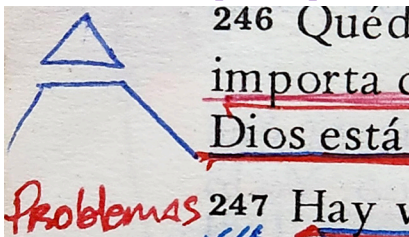 246 Quéd
importa
Dios está
Problemas 247 Hay